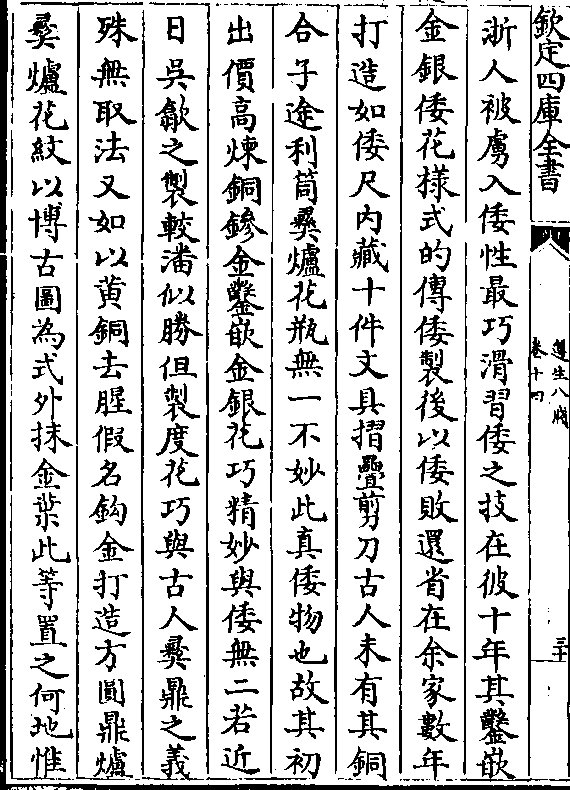 欽定四庫全書
遵生八牋
卷十四
三十
浙人被虜入倭性最巧滑習倭之技在彼十年其鑿嵌
金銀倭花樣式的傳倭製後以倭敗還省在余家數年
打造如倭尺内藏十件文具摺疊剪刀古人未有其銅
合子途利筒彞爐花瓶無一不妙此真倭物也故其初
出價高煉銅鏒金鑿嵌金銀花巧精妙與倭無二若近
日吳歙之製較潘似勝但製度花巧與古人彞鼎之義
殊無取法又如以黄銅去腥假名鈎金打造方圓鼎爐
彞爐花紋以博古圖為式外抹金葉此等置之何地惟